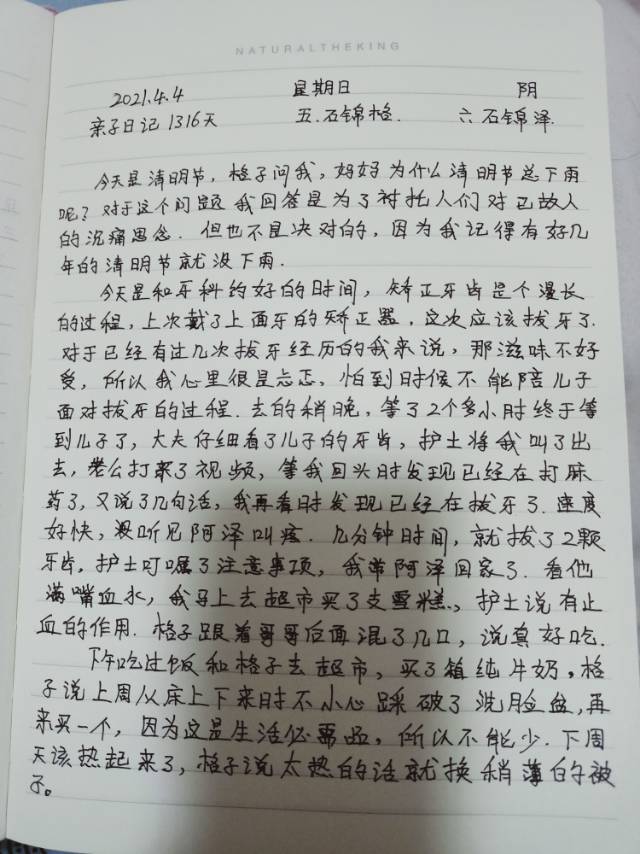 NATURALTHEKING
2021.4.4 星期日 阴
亲子日记1316天 五.石锦格. 六石锦泽.
今天是清明节，格子问我，妈妈为什么清明节总下雨
呢？对于这个问题我回答是为了衬托人们对已故人
的沉痛思念．但也不是决对的，因为我记得有好几
年的清明节就没下雨．
今天是和牙科约好的时间，矫正牙齿是个漫长
的过程，上次戴了上面牙的矫正器，这次应该拔牙了．
对于已经有过几次拔牙经历的我来说，那滋味不好
受，所以我心里很是忐忑，怕到时候不能陪儿子
面对拔牙的过程．去的稍晚，等了2个多小时终于等
到儿子了，大夫仔细看了儿子的牙齿，护士将我叫了出
去，老公打来了视频，等我回头时发现已经在打麻
药了，又说了几句话，我再看时发现已经在拔牙了．速度
好快，没听见阿泽叫疼．几分钟时间，就拔了2颗
牙齿，护士叮嘱了注意事项，我带阿泽回家了．看他
满嘴血水，我马上去超市买了支雪糕、护士说有止
血的作用．格子跟着哥哥后面混了几口，说真好吃．
下午吃过饭和格子去超市，买了箱纯牛奶，格
子说上周从床上下来时不小心踩破了洗脸盆，再
来买一个，因为这是生活必需品，所以不能少．下周
天该热起来了，格子说太热的话就换稍薄的被
子。